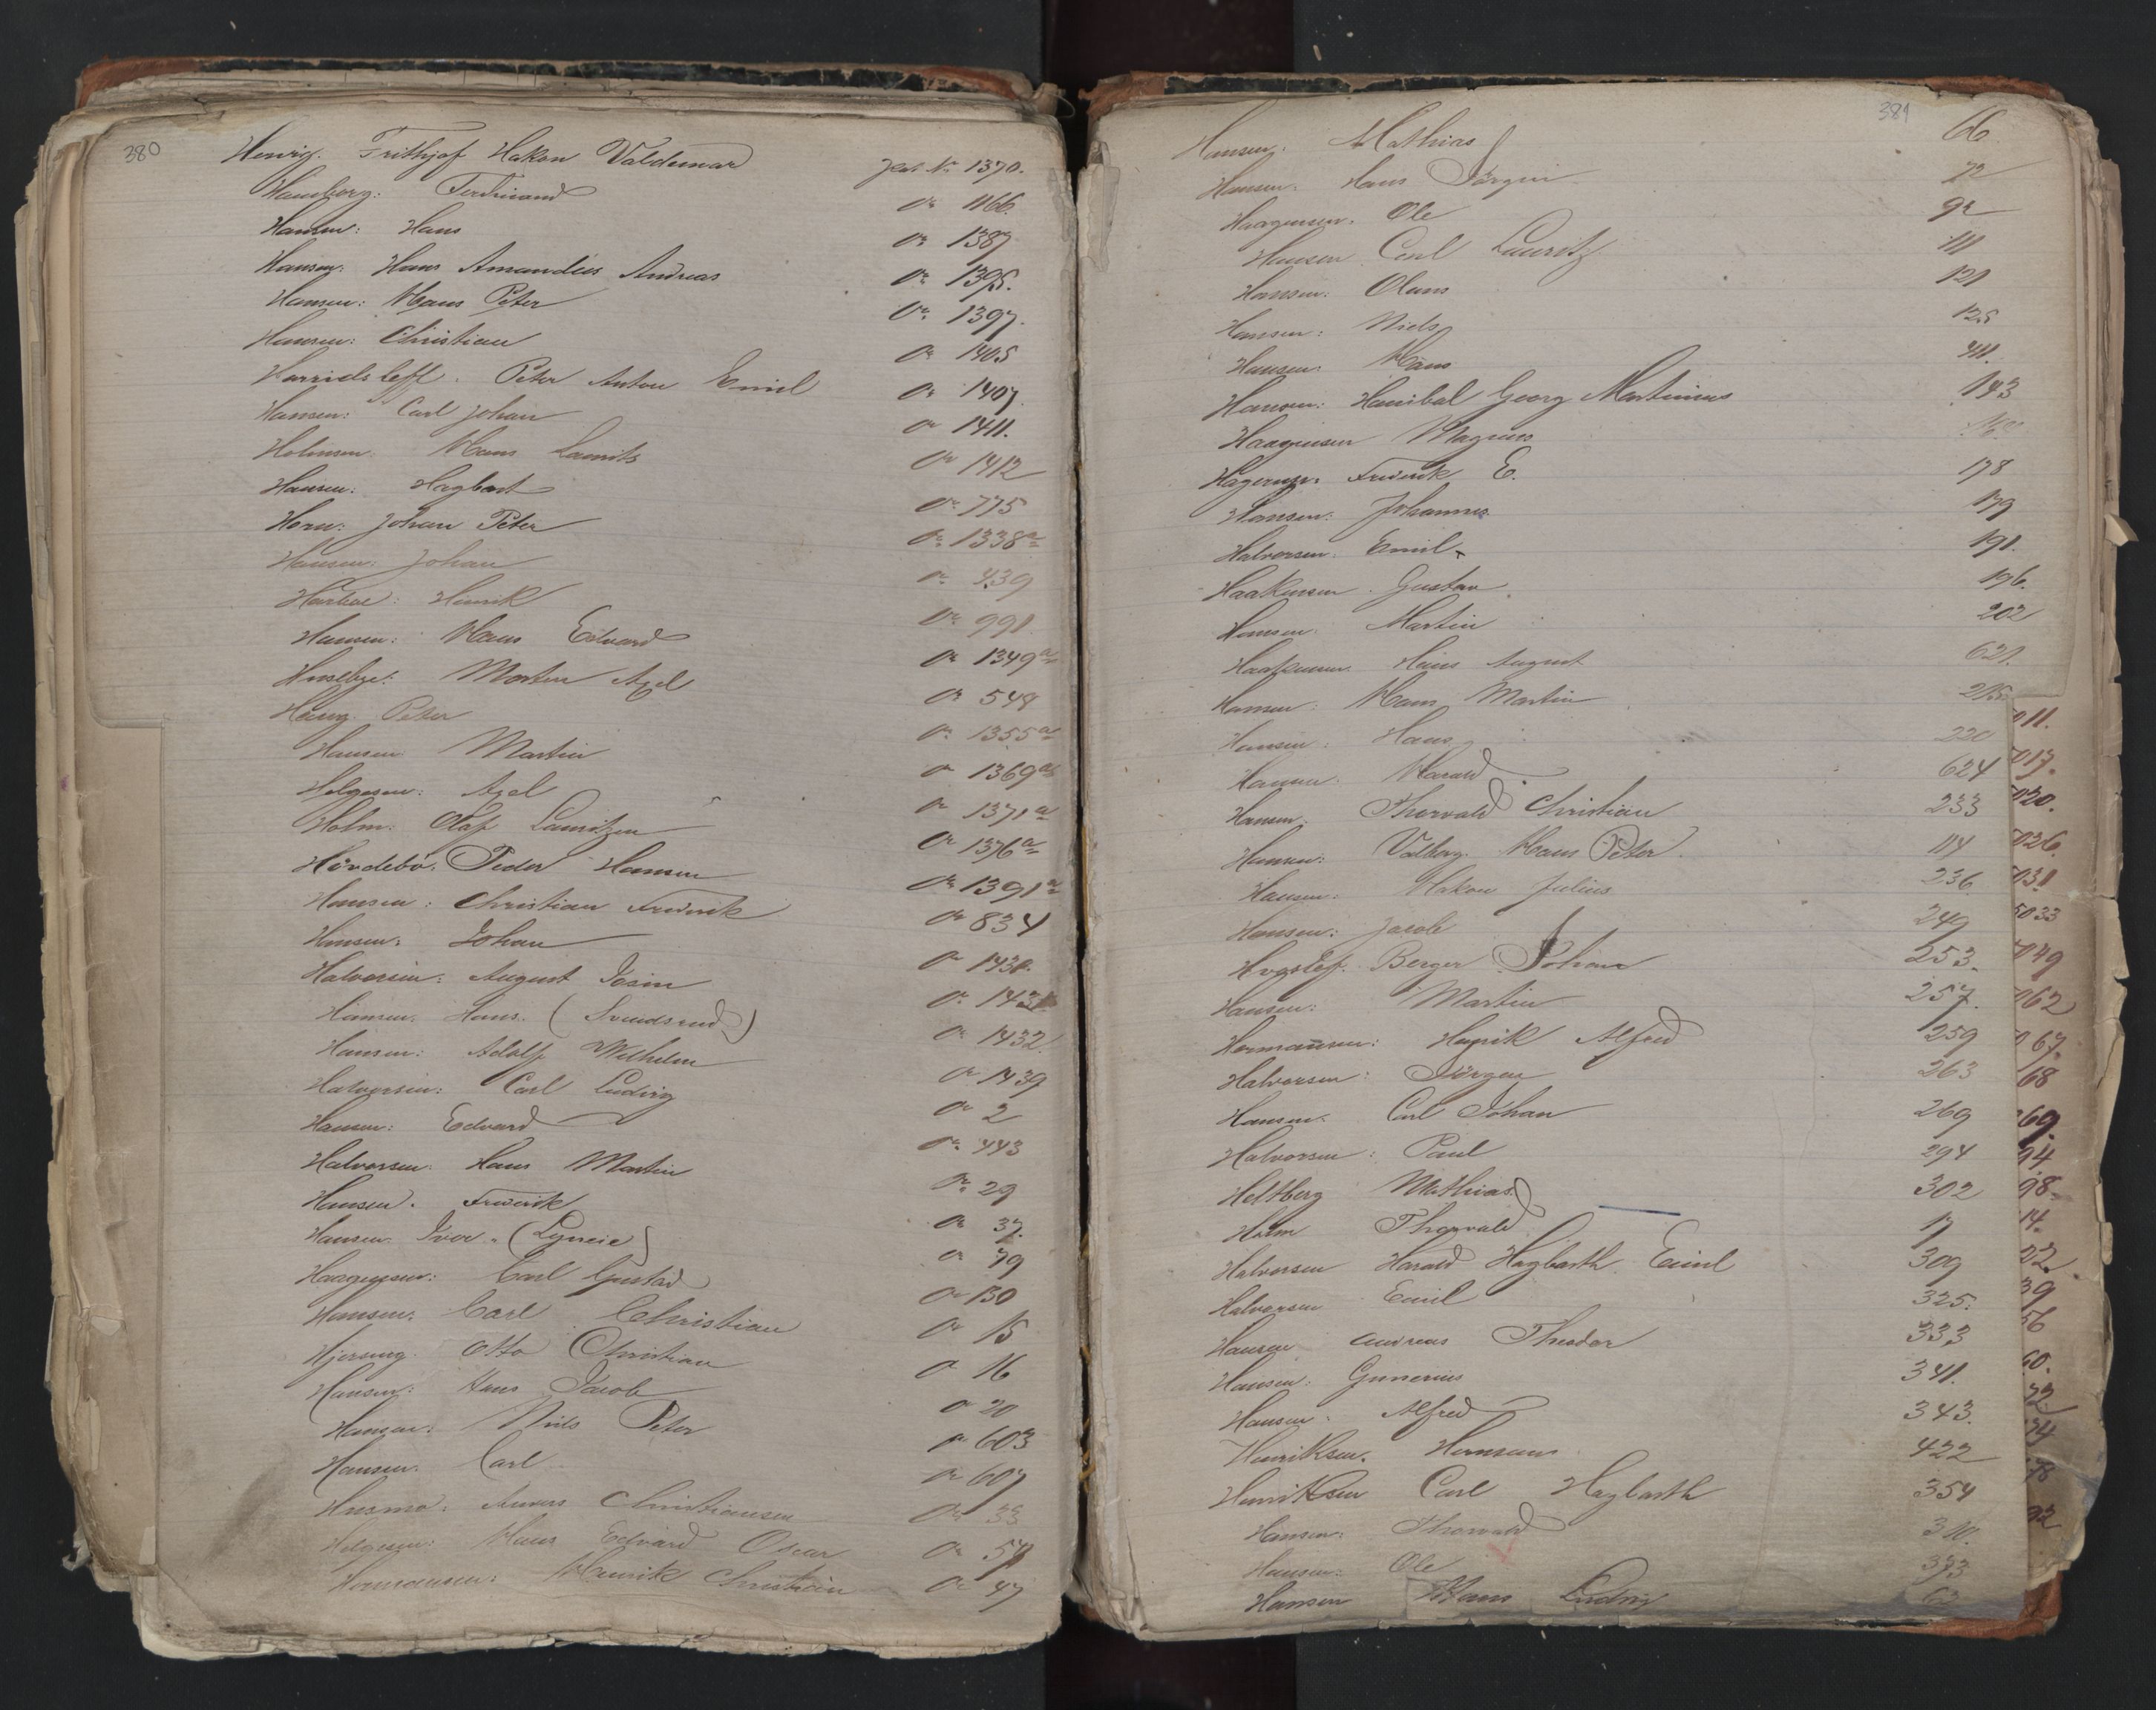 380
Henrig. Frithjof Hakon Valdemar Pat. Nr 1370.
Hamborg: Ferdinand do 1166.
Hansen: Hans do 1387
Hansen: Hans Amandius Andreas do 1395.
Hansen: Hans Peter do 1397.
Hansen: Christian do 1405
Harridsleff. Peter Anton Emil do 1407
Hansen: Carl Johan do 1411.
Holmsen Hans Laurits do 1412
Hansen: Hagbart do 775
Horn: Johan Peter do 1338a
Hansen: Johan do 439
Harboe: Henrik do 991
Hansen: Hans Edvard do 1349a
Huseby: Morten Axel do 548
Haug Peter do 1355a
Hansen Martin do 1369a
Helgesen: Axel do 1371a
Holm. Olaf Lauritzen do 1376a
Hördebö. Peder Hansen do 1391a
Hansen: Christian Fredrik do 834
Hansen: Johan do 1430.
Halvorsen: August Josin do 1431
Hansen. Hans. (Svendsrud) do 1432.
Hansen: Adolf Wilhelm do 1439
Halvorsen: Carl Ludvig do 2
Hansen: Edvard do 443
Halvorsen: Hans Martin do 29
Hansen. Fredrik do 37.
Hansen Iver. (Lyneie) do 79
Haagensen: Carl Gustav do 130
Hansen: Carl Christian do 15
Hjersing. Otto Christian do 16
Hansen: Hans Jacob do 20
Hansen: Niels Peter do 603
Hansen. Carl do 607
Husmo: Anders Christiansen do 33
Helgesen: Hans Edvard Oscar do 54
Hermansen: Henrik Christian do 47
381
Hansen. Mathias 66
Hansen: Hans Jörgen 72
Haagensen. Ole 92
Hansen Carl Lauritz 111
Hansen: Olaus 121
Hansen: Niels 125
Hansen Hans 411.
Hansen: Hanibal Georg Martinius 143
Haagensen Magnus
Hagerup: Fredrik E. 178
Hansen: Johannes 179
Halvorsen: Emil 191.
Haakensen Gustav. 196.
Hansen Martin 202
Haakensen Hans August 621.
Hansen: Hans Martin 215
Hansen: Hans 220
Hansen Harald 624
Hansen: Thorvald Christian 233
Hansen: Valborg. Hans Peter. 114
Hansen: Hakon Julius 236
Hansen: Jacob 249
Hvoslef. Berger Johan 253.
Hansen: Martin 257.
Hermansen: Henrik Alfred 259
Halvorsen: Jörgen 263
Hansen. Carl Johan 269
Halvorsen: Paul 294
Heltberg Mathias 302
Holm Thorvald 17
Halvorsen Harald Hagbarth Emil 309
Halvorsen Emil 325.
Hansen Andreas Theodor 333
Hansen: Gunerius 341.
Hansen. Alfred 343.
Henriksen. Hermann 422
Henriksen Carl Hagbarth 354
Hansen: Thorvald 310.
Hansen: Ole 373
Hansen Hans Ludvig 63
011.
017.
020.
026.
031
5033
049
062
67.
68
69.
94
98.
14.
22.
39
56
60.
72.
74
78
92